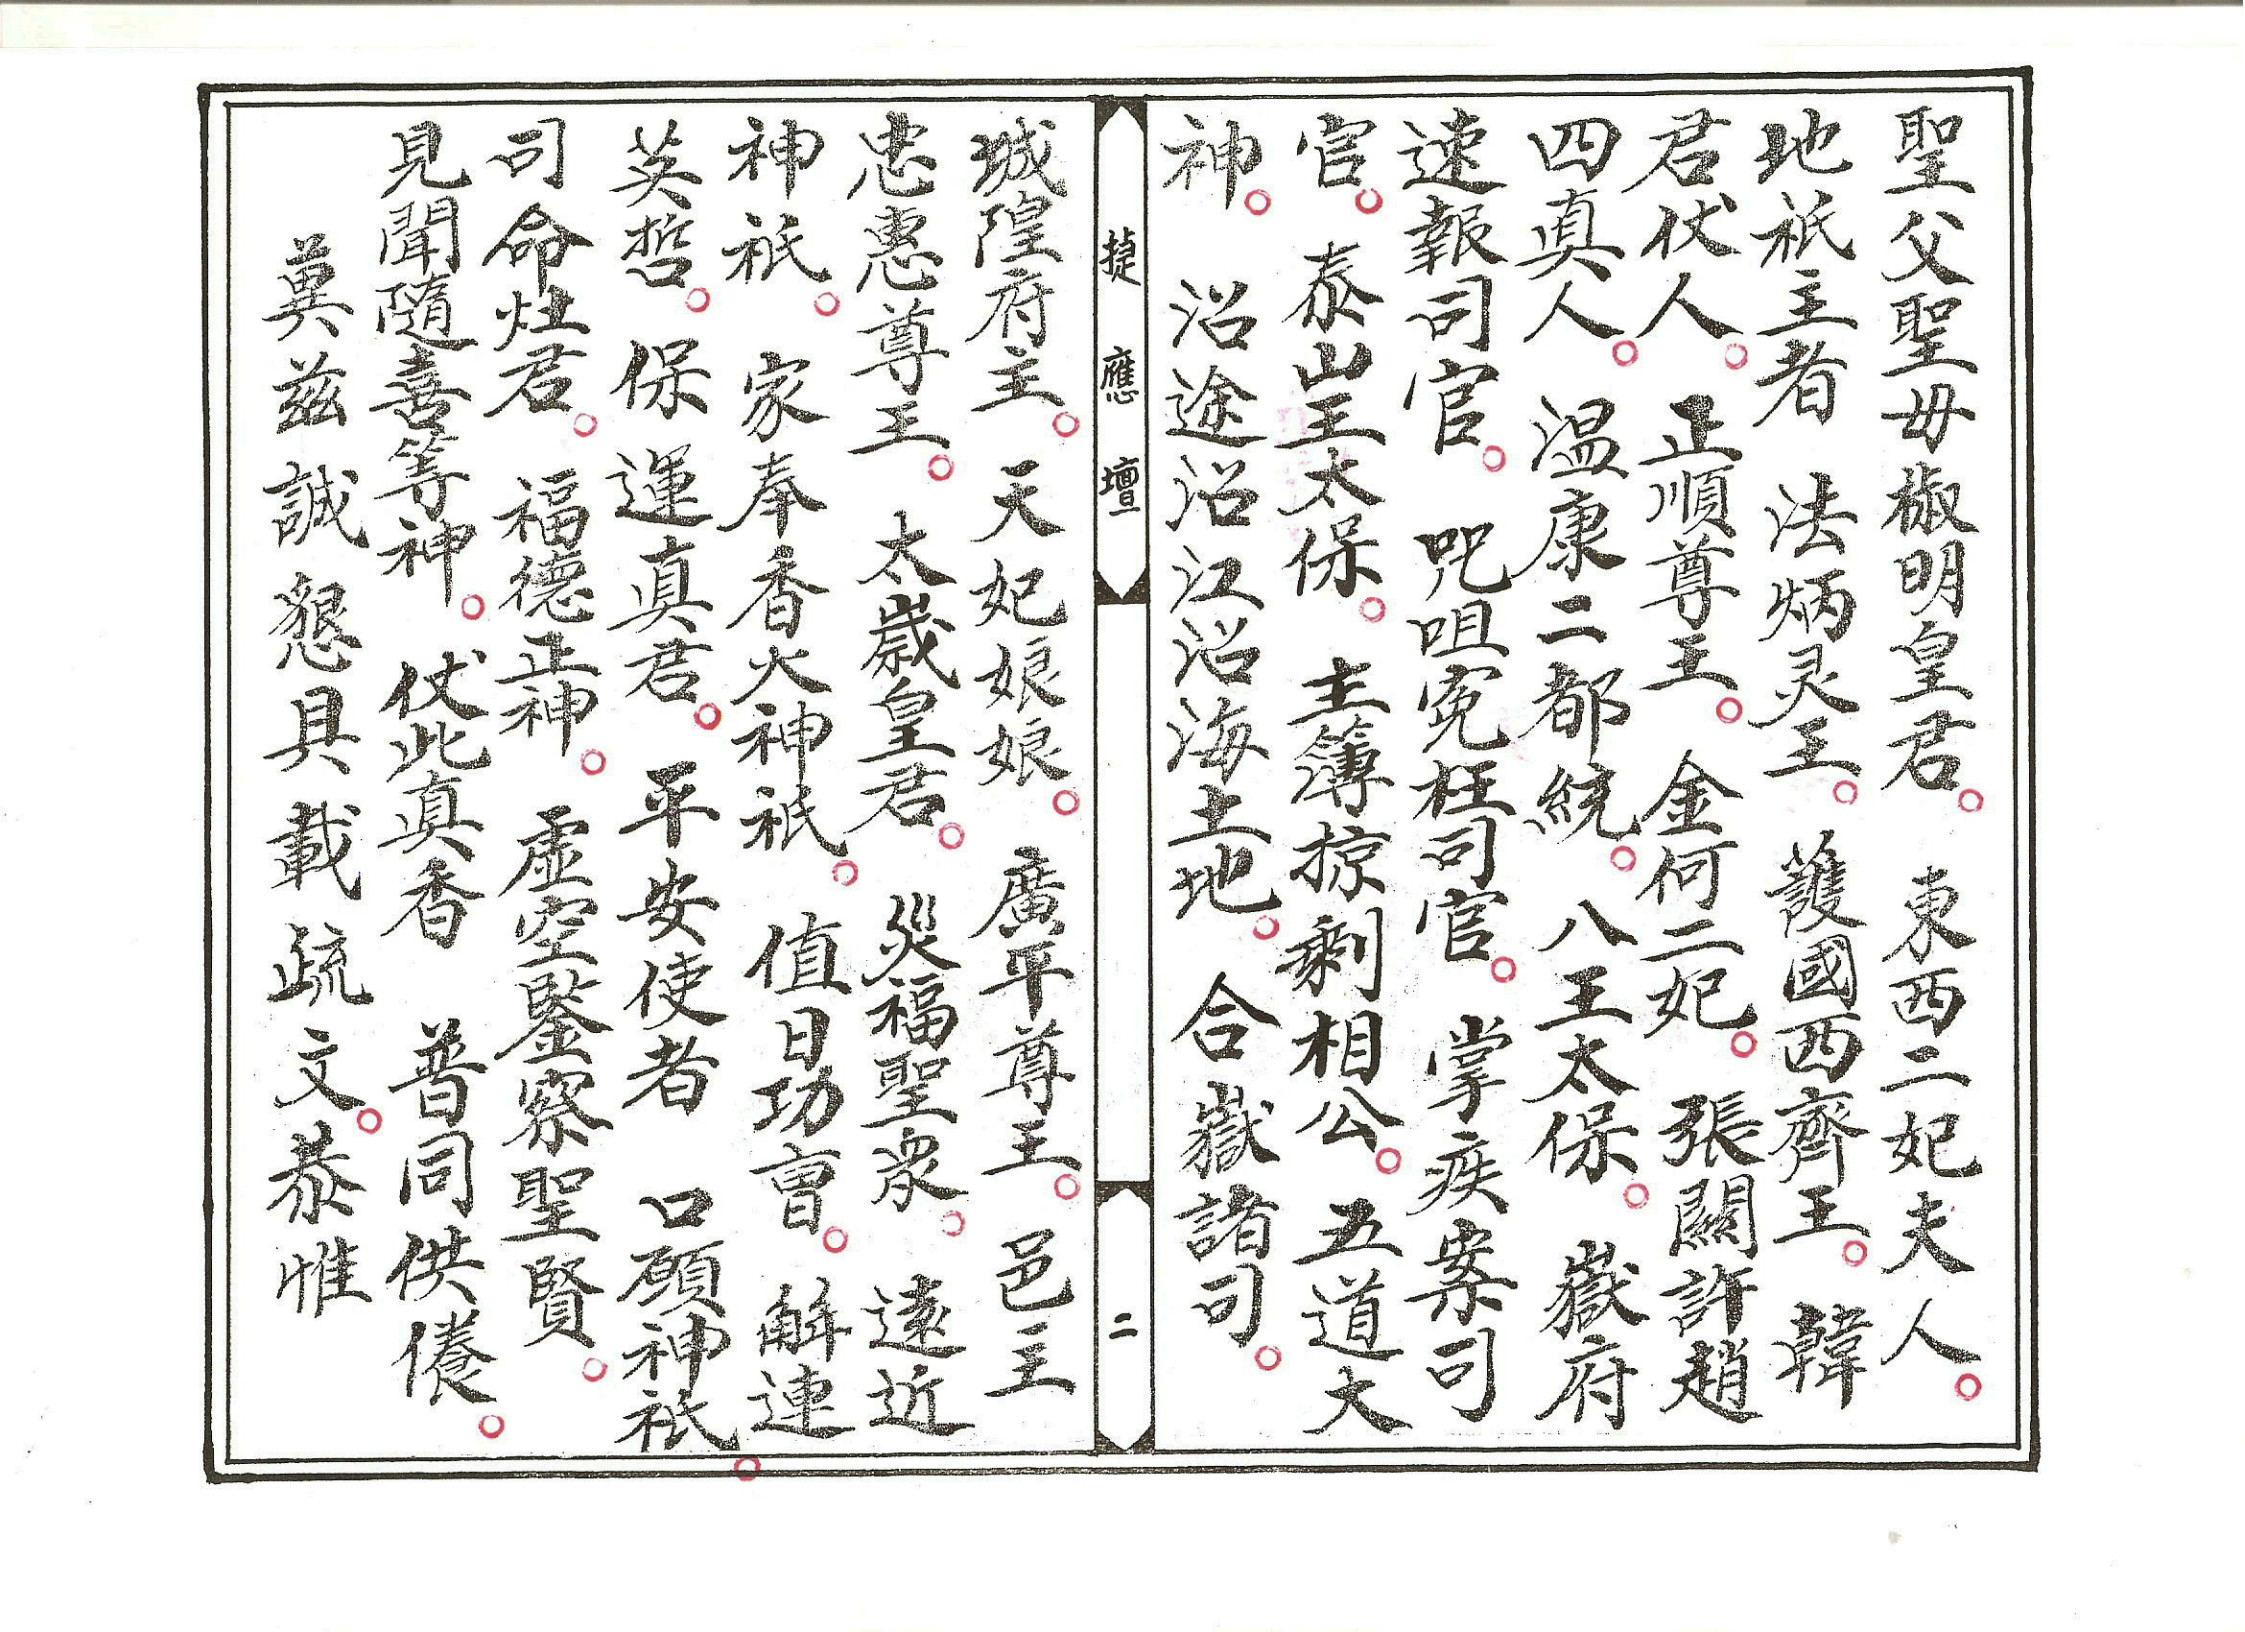 聖父聖母椒明皇君。東西二妃夫人。
地祇主者 法炳灵王。護國西齊王。韓
君伏人。正順尊王。金何二妃。張關許趙
四真人。温康二都統。八王太保。嶽府
速報司官。咒咀寃枉司官。掌疾案司
官。泰山王太保。主簿掠剩相公。五道大
神。沿途沿江沿海土地。合嶽諸司。
㨗應壇
二
城隍府主。天妃娘娘。廣平尊王。邑主
忠惠尊王。太嵗皇君。災福聖衆。遠近
神祇。家奉香火神祇。值日功曺。觧連
英哲。保運真君。平安使者 口頋神祇。
司命灶君。福德正神。虚空鑒察聖賢。
見聞隨喜等神。仗此真香 普同供儀。
奠兹誠懇具載疏文。恭惟